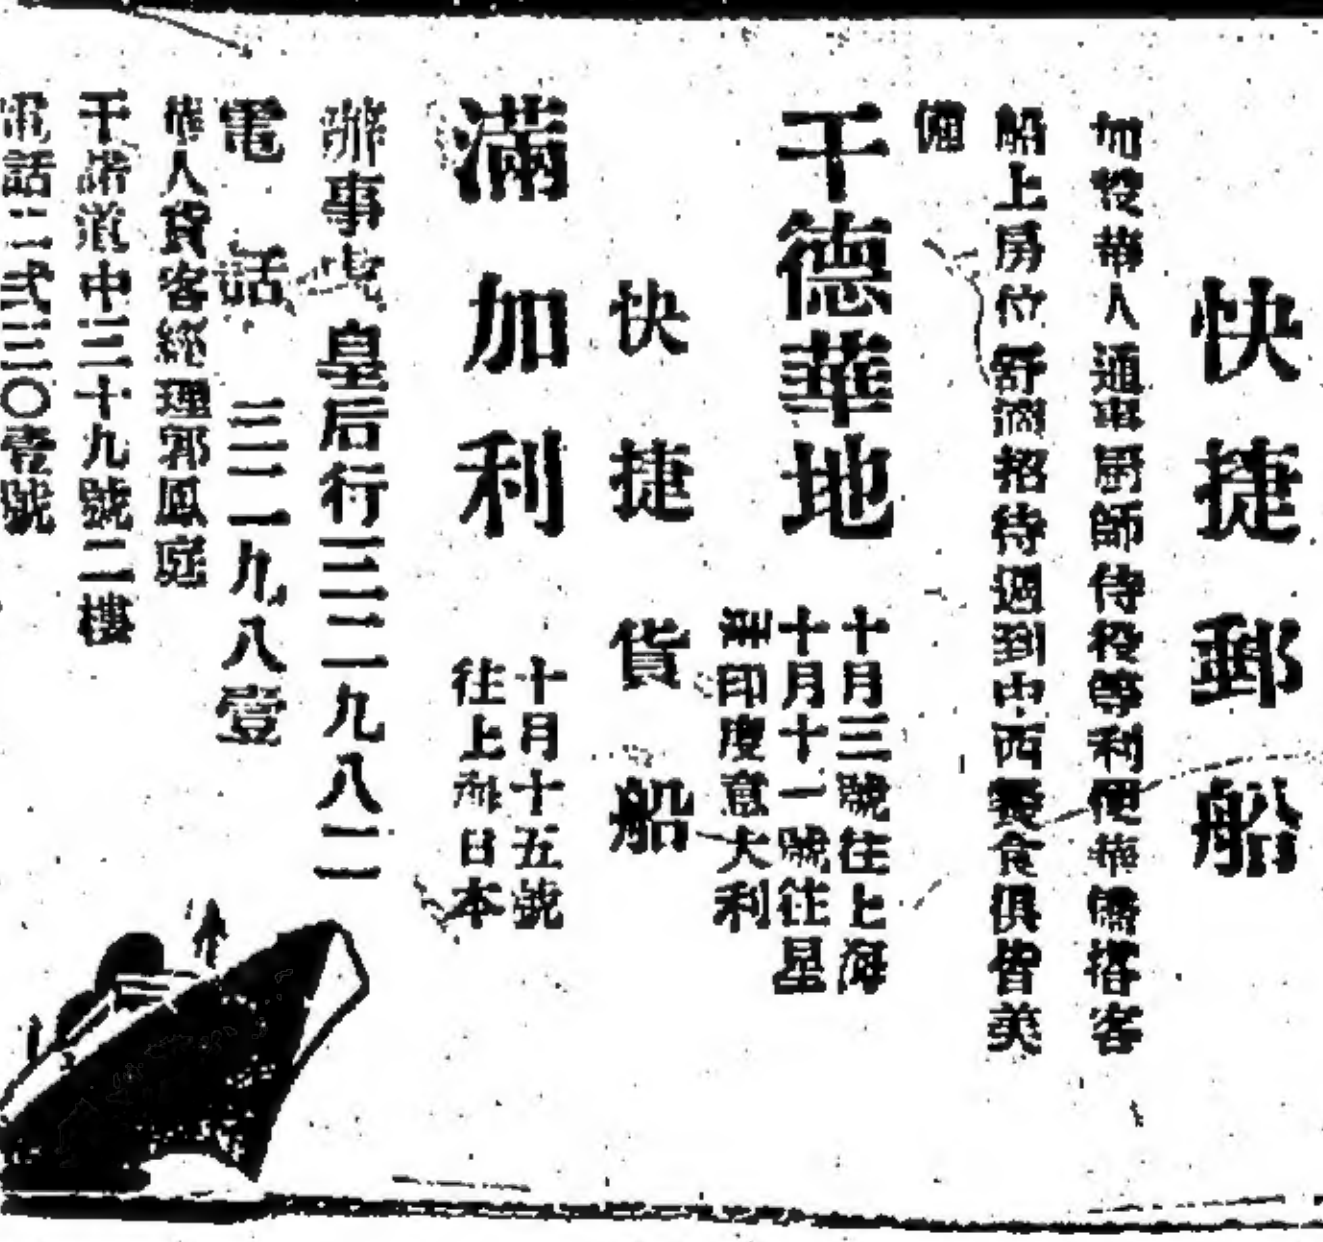 快捷郵船
加設華人通事厨師侍役等利便華僑搭客
船上房位舒適招待週到中西餐食俱皆美
備
干德華地
十月三號往上海
十月十一號往星
洋印度意大利
快捷貨船
滿加利
十月十五號
往上海日本
辦事處皇后行三二一九八二
電話 三二一九八壹
華人貨客經理郭鳳庭
干諾道中三十九號二樓
電話二弍三〇壹號